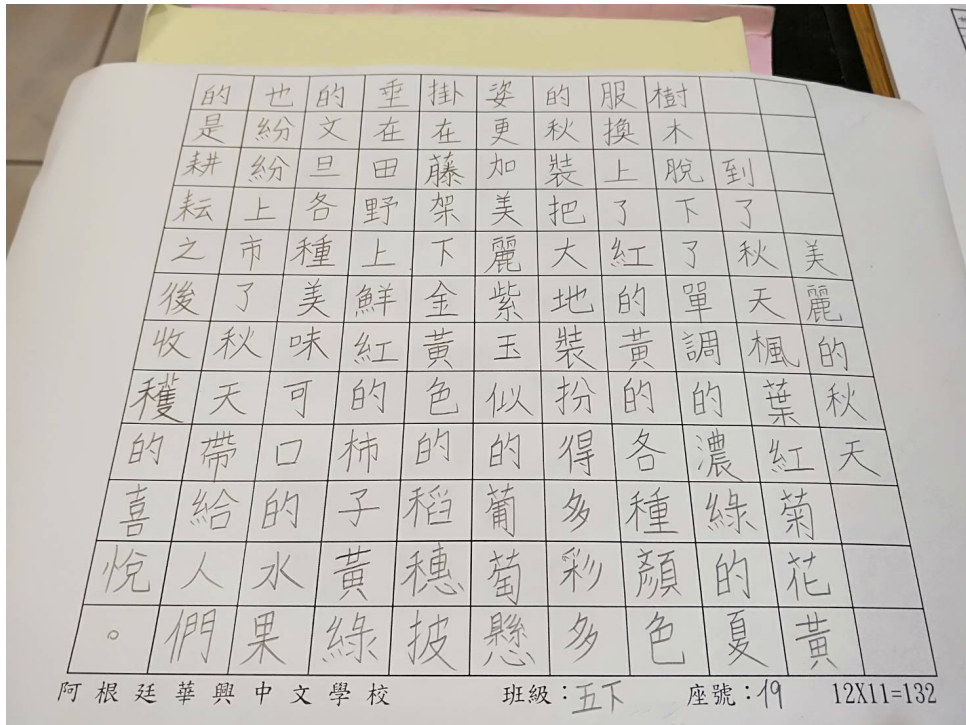 美麗的秋天
到了秋天楓葉紅菊花黃
樹木脫下了單調的濃綠的夏
服換上了紅的黃的各種顏色
的秋裝把大地裝扮得多彩多
姿更加美麗紫玉似的葡萄懸
掛在藤架下金黃色的稻穗披
垂在田野上鮮紅的柿子黃綠
的文旦各種美味可口的水果
也紛紛上市了秋天帶給人們
的是耕耘之後收穫的喜悅。
阿根廷華興中文學校 班級:五下 座號:19 12X11=132